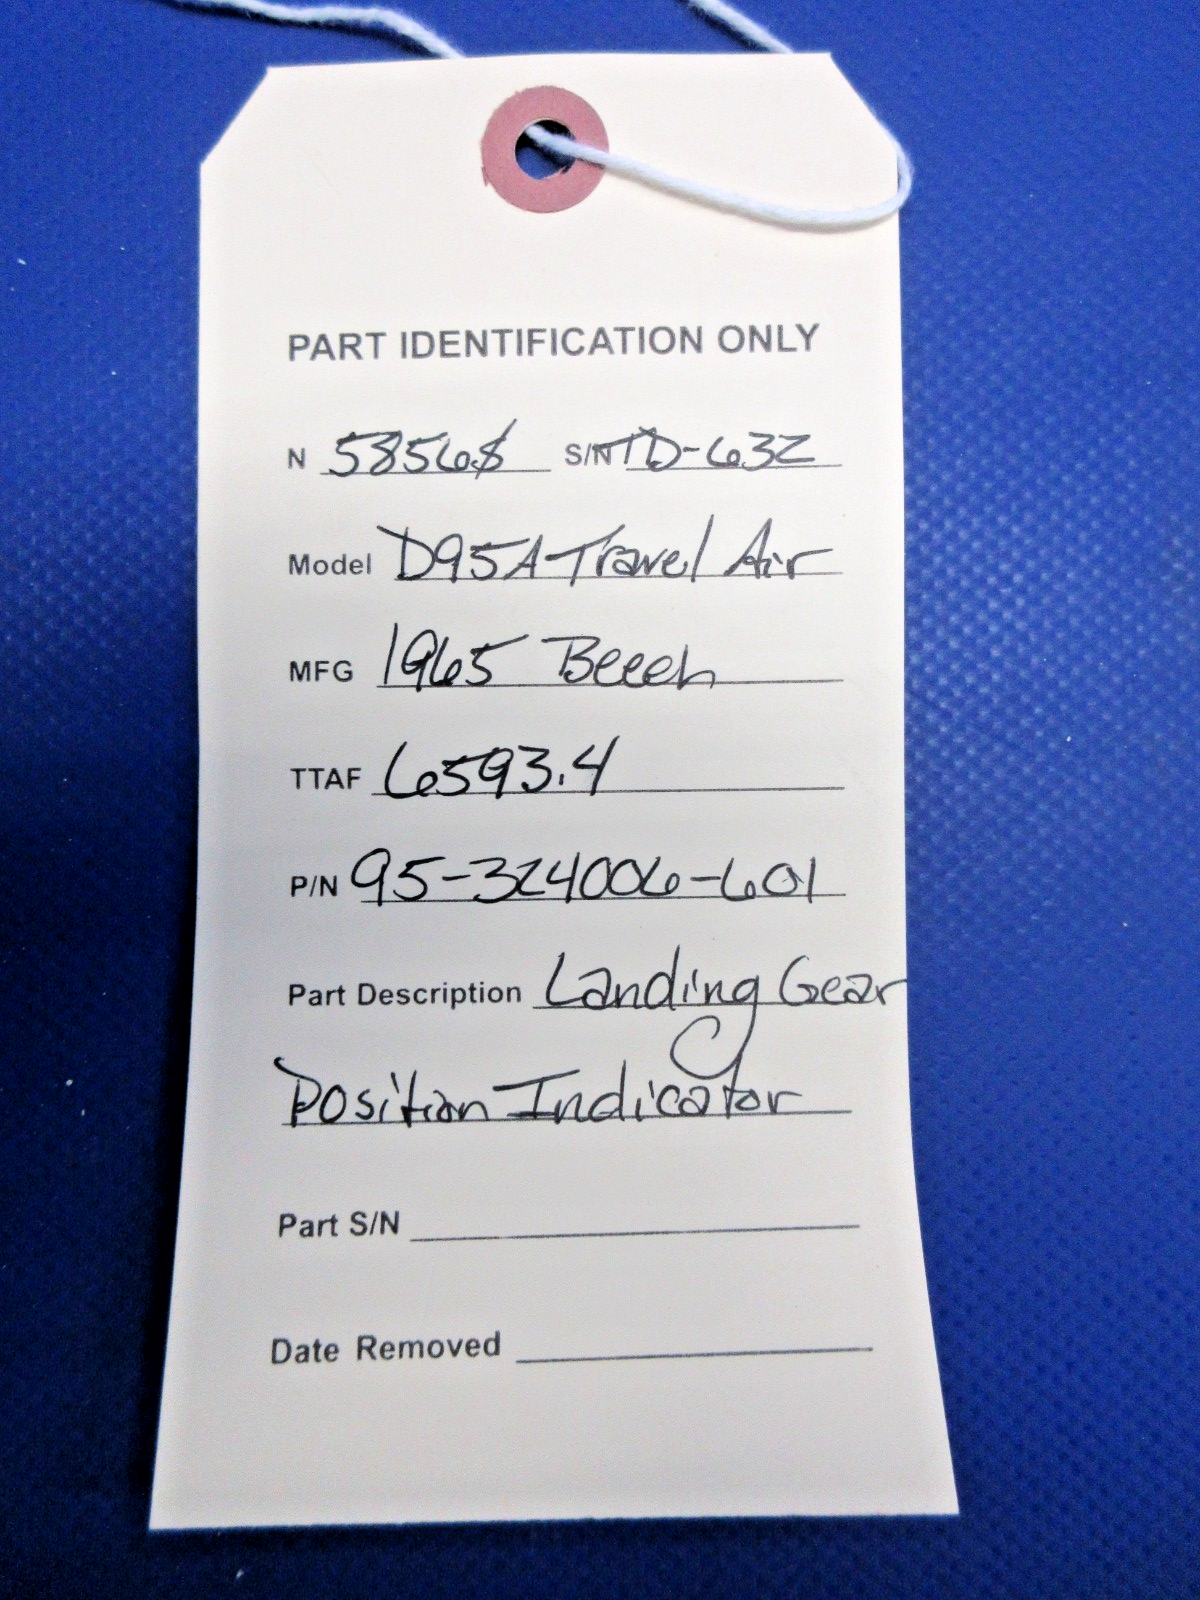 PART IDENTIFICATION ONLY
N 5856S S/N TD-632
Model D95A Travel Air
MFG 1965 Beech
TTAF 6593.4
P/N 95-324006-601
Part Description Landing Gear
Position Indicator
Part S/N
Date Removed